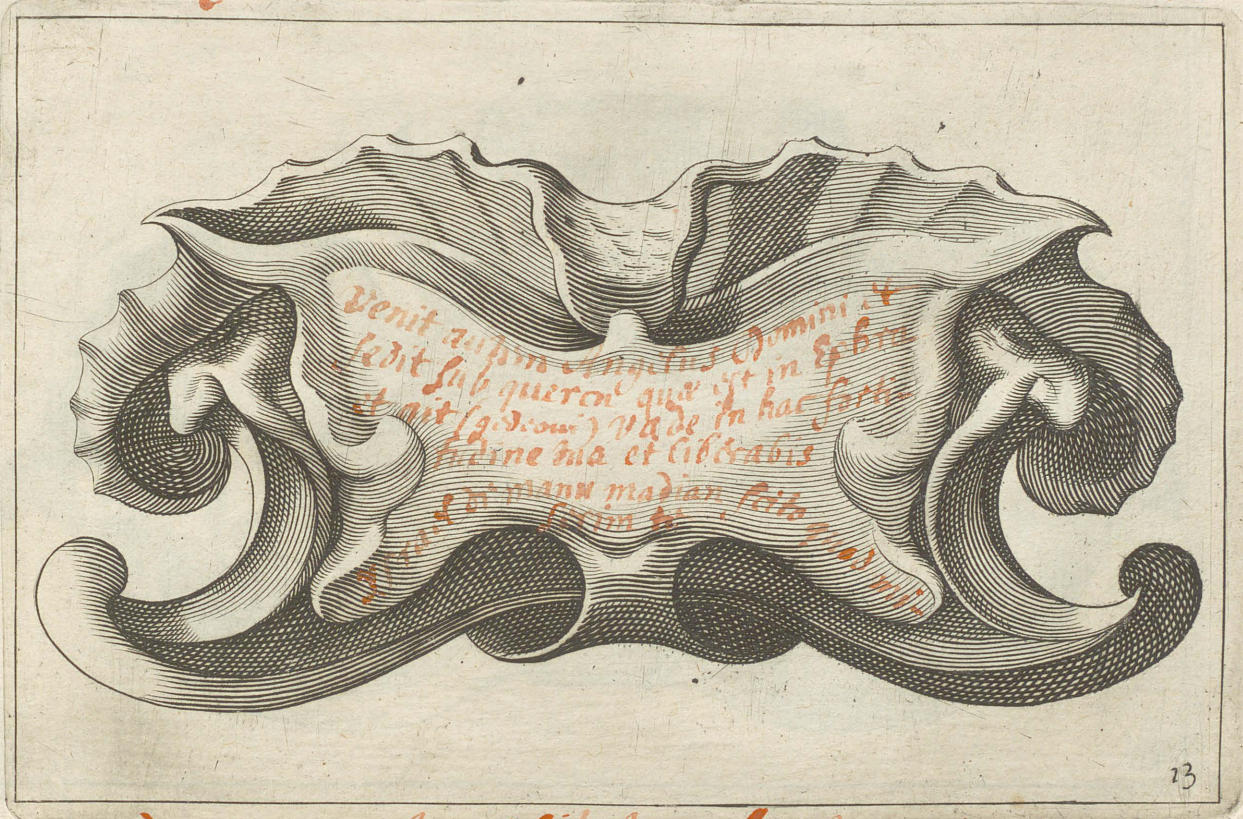 Venit autem Angelus Domini &
sedit sub quercu quæ est in Ephra
et ait (gedeoni) Vade in hac forti-
tudine tua et liberabis
Israel de manu madian. scito quod mi-
serim te
23